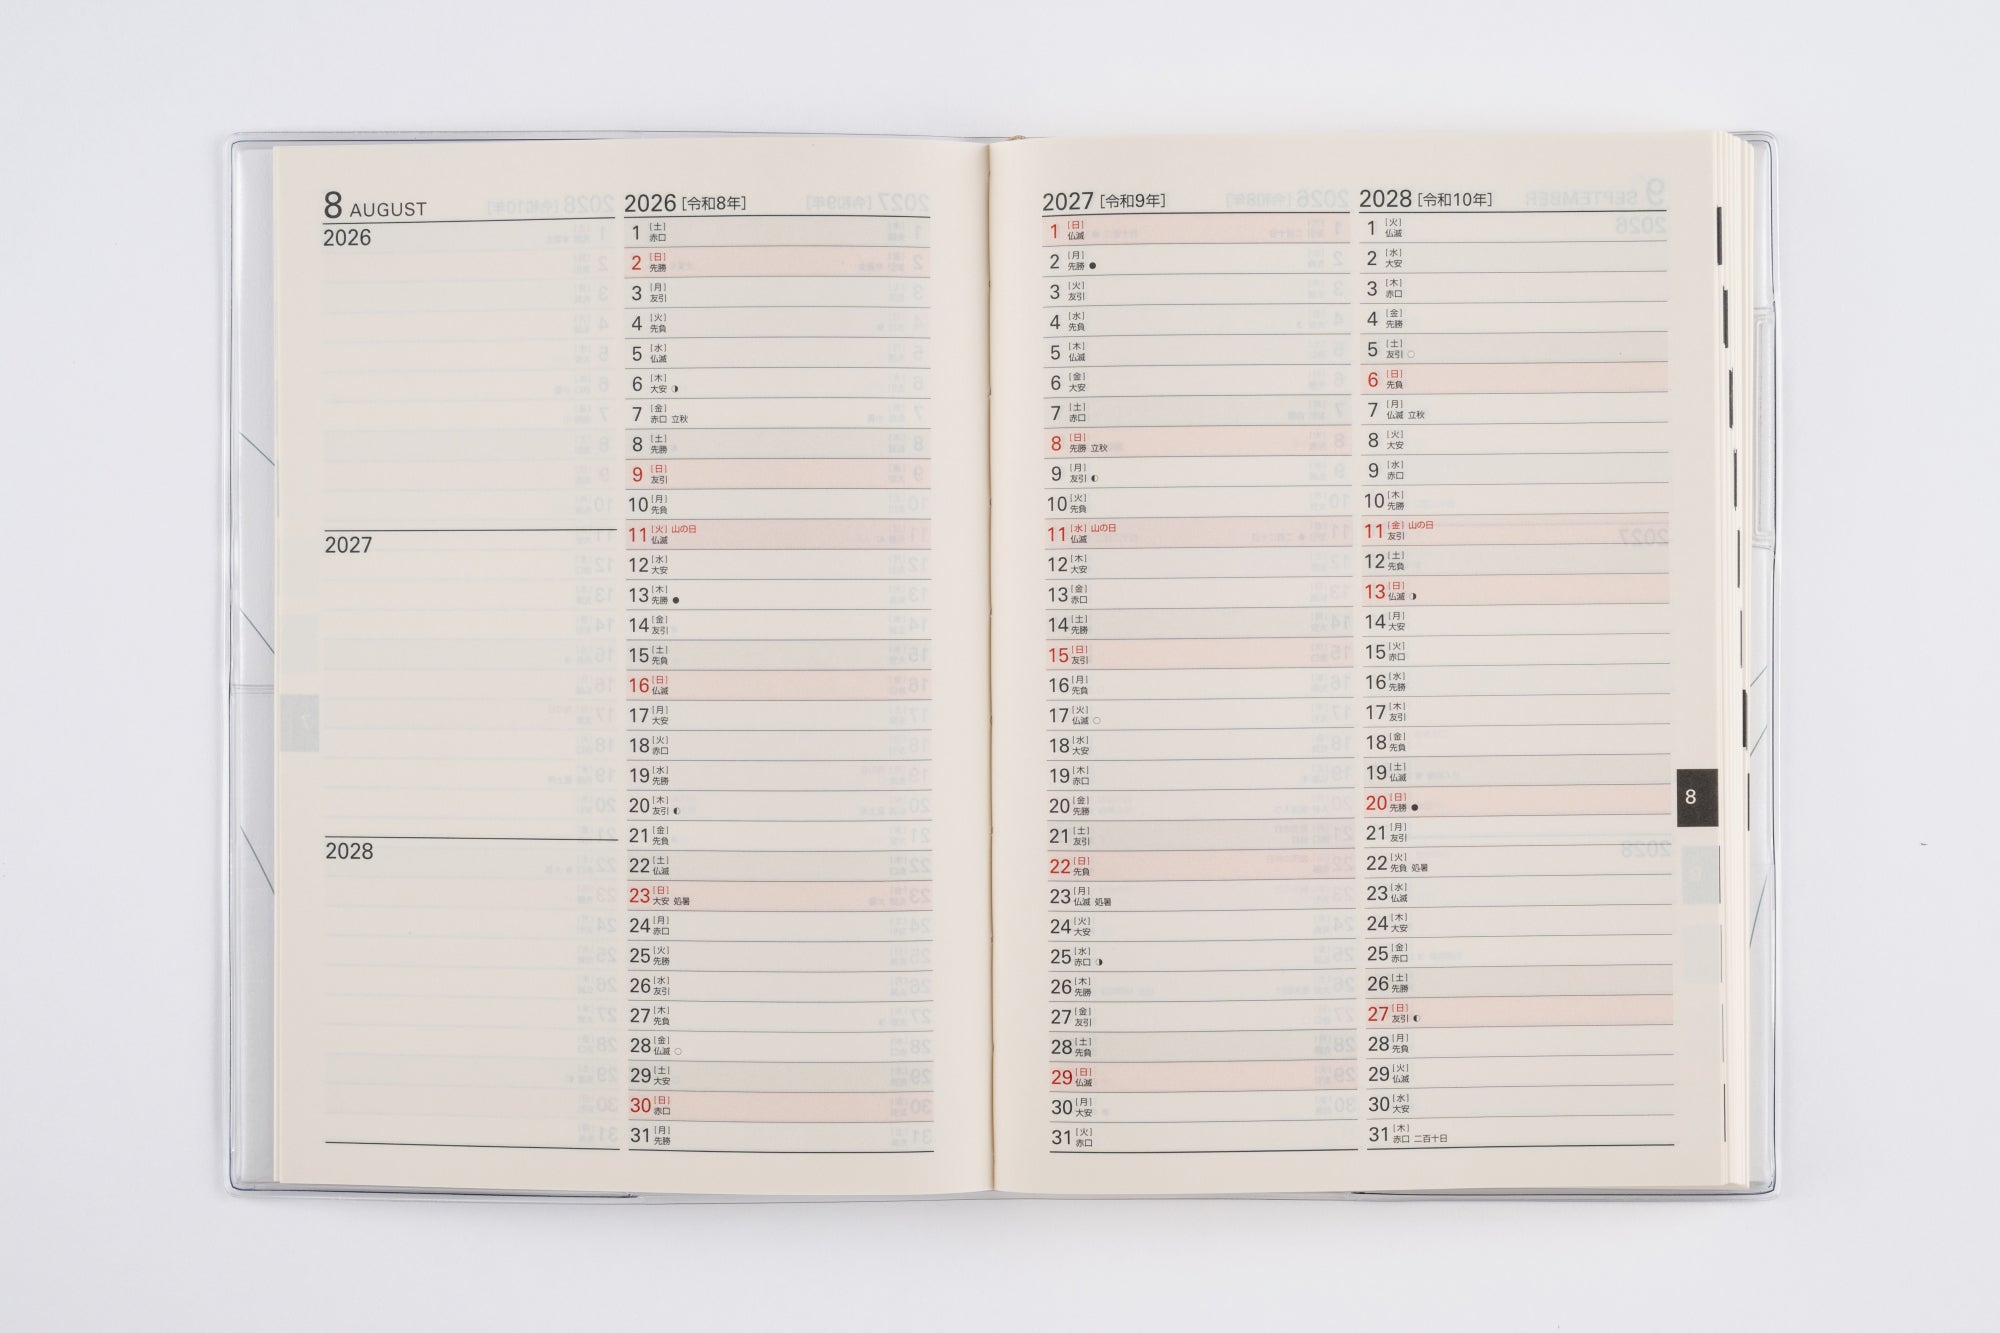 8 AUGUST
2026
2027
2028
2026 [令和8年]
1 [土] 赤口
2 [日] 先勝
3 [月] 友引
4 [火] 先負
5 [水] 仏滅
6 [木] 大安 ◑
7 [金] 赤口 立秋
8 [土] 先勝
9 [日] 友引
10 [月] 先負
11 [火] 山の日 仏滅
12 [水] 大安
13 [木] 先勝 ●
14 [金] 友引
15 [土] 先負
16 [日] 仏滅
17 [月] 大安
18 [火] 赤口
19 [水] 先勝
20 [木] 友引 ◐
21 [金] 先負
22 [土] 仏滅
23 [日] 大安 処暑
24 [月] 赤口
25 [火] 先勝
26 [水] 友引
27 [木] 先負
28 [金] 仏滅 ○
29 [土] 大安
30 [日] 赤口
31 [月] 先勝
2027 [令和9年]
1 [日] 仏滅
2 [月] 先勝 ●
3 [火] 友引
4 [水] 先負
5 [木] 仏滅
6 [金] 大安
7 [土] 赤口
8 [日] 先勝 立秋
9 [月] 友引 ◐
10 [火] 先負
11 [水] 山の日 仏滅
12 [木] 大安
13 [金] 赤口
14 [土] 先勝
15 [日] 友引
16 [月] 先負
17 [火] 仏滅 ○
18 [水] 大安
19 [木] 赤口
20 [金] 先勝
21 [土] 友引
22 [日] 先負
23 [月] 仏滅 処暑
24 [火] 大安
25 [水] 赤口 ◑
26 [木] 先勝
27 [金] 友引
28 [土] 先負
29 [日] 仏滅
30 [月] 大安
31 [火] 赤口
2028 [令和10年]
1 [火] 仏滅
2 [水] 大安
3 [木] 赤口
4 [金] 先勝
5 [土] 友引 ○
6 [日] 先負
7 [月] 仏滅 立秋
8 [火] 大安
9 [水] 赤口
10 [木] 先勝
11 [金] 山の日 友引
12 [土] 先負
13 [日] 仏滅 ◑
14 [月] 大安
15 [火] 赤口
16 [水] 先勝
17 [木] 友引
18 [金] 先負
19 [土] 仏滅
20 [日] 先勝 ●
21 [月] 友引
22 [火] 先負 処暑
23 [水] 仏滅
24 [木] 大安
25 [金] 赤口
26 [土] 先勝
27 [日] 友引 ◐
28 [月] 先負
29 [火] 仏滅
30 [水] 大安
31 [木] 赤口 二百十日
8